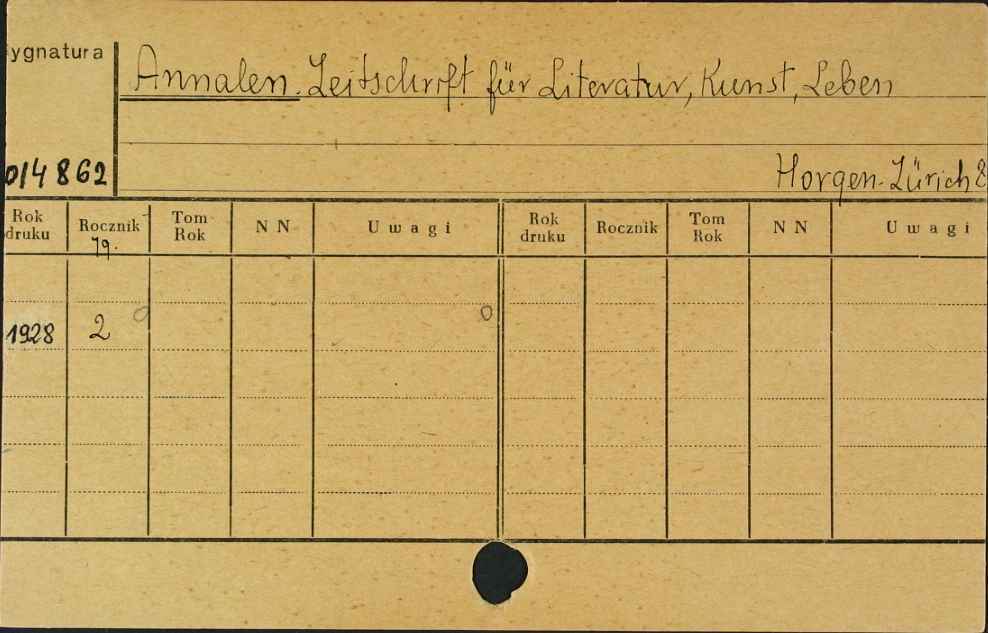 ygnatura
Annalen. Zeitschrift für Literatur, Kunst, Leben
014862
Horgen-Zürich 8
Rok druku Rocznik Tom Rok N N Uwagi Rok druku Rocznik Tom Rok N N Uwagi
Jg.
1928 2